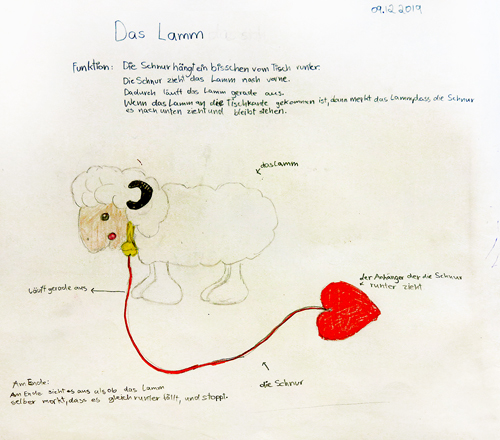 09.12.2019
Das Lamm
Funktion: Die Schnur hängt ein bisschen vom Tisch runter.
Die Schnur zieht das Lamm nach vorne.
Dadurch läuft das Lamm gerade aus.
Wenn das Lamm an die Tischkante gekommen ist, dann merkt das Lamm, dass die Schnur
es nach unten zieht und bleibt stehen.
das Lamm
der Anhänger der die Schnur
runter zieht
läuft gerade aus
die Schnur
Am Ende:
Am Ende sieht es aus als ob das Lamm
selber merkt, dass es gleich runter fällt, und stoppt.